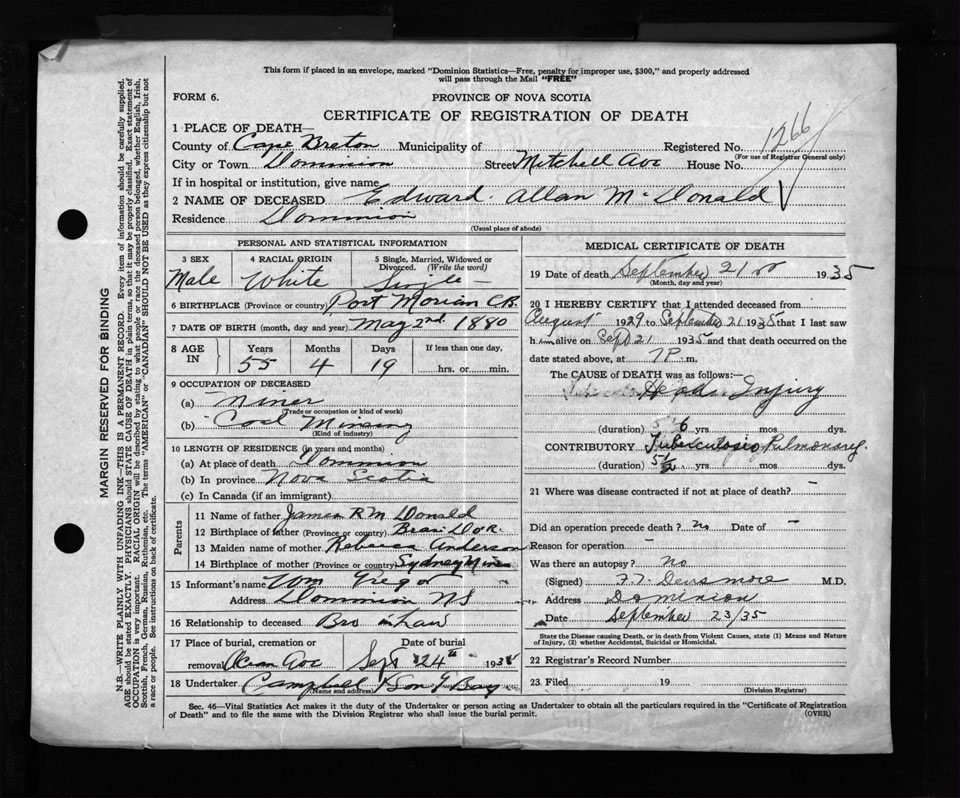 This form if placed in an envelope, marked "Dominion Statistics—Free, penalty for improper use, $300," and properly addressed
will pass through the Mail "FREE"
FORM 6.
PROVINCE OF NOVA SCOTIA
CERTIFICATE OF REGISTRATION OF DEATH
1266
1 PLACE OF DEATH—
County of Cape Breton Municipality of Registered No.
(For use of Registrar General only)
City or Town Dominion Street Mitchell Ave House No.
If in hospital or institution, give name
2 NAME OF DECEASED Edward Allan McDonald
Residence Dominion
(Usual place of abode)
PERSONAL AND STATISTICAL INFORMATION
3 SEX 4 RACIAL ORIGIN 5 Single, Married, Widowed or
Divorced. (Write the word)
Male White Single
6 BIRTHPLACE (Province or country) Port Morien C.B.
7 DATE OF BIRTH (month, day and year) May 2nd 1880
8 AGE IN Years Months Days If less than one day,
55 4 19 hrs. or min.
9 OCCUPATION OF DECEASED
(a) Miner
(Trade or occupation or kind of work)
(b) Coal Mining
(Kind of industry)
10 LENGTH OF RESIDENCE (in years and months)
(a) At place of death Dominion
(b) In province Nova Scotia
(c) In Canada (if an immigrant)
Parents
11 Name of father James R McDonald
12 Birthplace of father (Province or country) Bras D'Or
13 Maiden name of mother Rebecca Anderson
14 Birthplace of mother (Province or country) Sydney Mines
15 Informant's name Wm Gregor
Address Dominion NS
16 Relationship to deceased Bro in Law
17 Place of burial, cremation or Date of burial
removal Ocean Ave Sept 24th 1935
18 Undertaker Campbell & Son G Bay
(Name and address)
MEDICAL CERTIFICATE OF DEATH
19 Date of death September 21 1935
(Month, day and year)
20 I HEREBY CERTIFY that I attended deceased from
August 1929 to September 21 1935 that I last saw
h im alive on Sept 21 1935 and that death occurred on the
date stated above, at 7 P. m.
The CAUSE OF DEATH was as follows:—
Head Injury
(duration) 6 yrs mos dys.
CONTRIBUTORY Tuberculosis Pulmonary
(duration) 5½ yrs mos dys.
21 Where was disease contracted if not at place of death? –
Did an operation precede death? No Date of –
Reason for operation –
Was there an autopsy? No
(Signed) F.T. Densmore M.D.
Address Dominion
Date September 23/35
State the Disease causing Death, or in death from Violent Causes, state (1) Means and Nature
of Injury, (2) whether Accidental, Suicidal or Homicidal.
22 Registrar's Record Number
23 Filed 19
(Division Registrar)
Sec. 46—Vital Statistics Act makes it the duty of the Undertaker or person acting as Undertaker to obtain all the particulars required in the "Certificate of Registration
of Death" and to file the same with the Division Registrar who shall issue the burial permit. (OVER)
MARGIN RESERVED FOR BINDING
N.B.—WRITE PLAINLY WITH UNFADING INK—THIS IS A PERMANENT RECORD. Every item of information should be carefully supplied.
AGE should be stated EXACTLY. PHYSICIANS should STATE CAUSE OF DEATH in plain terms, so that it may be properly classified. Exact statement of
OCCUPATION is very important. RACIAL ORIGIN will be described by stating to what people or race the deceased person belonged, whether English, Irish,
Scottish, French, German, Russian, Ruthenian, etc. The terms "AMERICAN" or "CANADIAN" SHOULD NOT BE USED as they express citizenship but not
a race or people. See instructions on back of certificate.